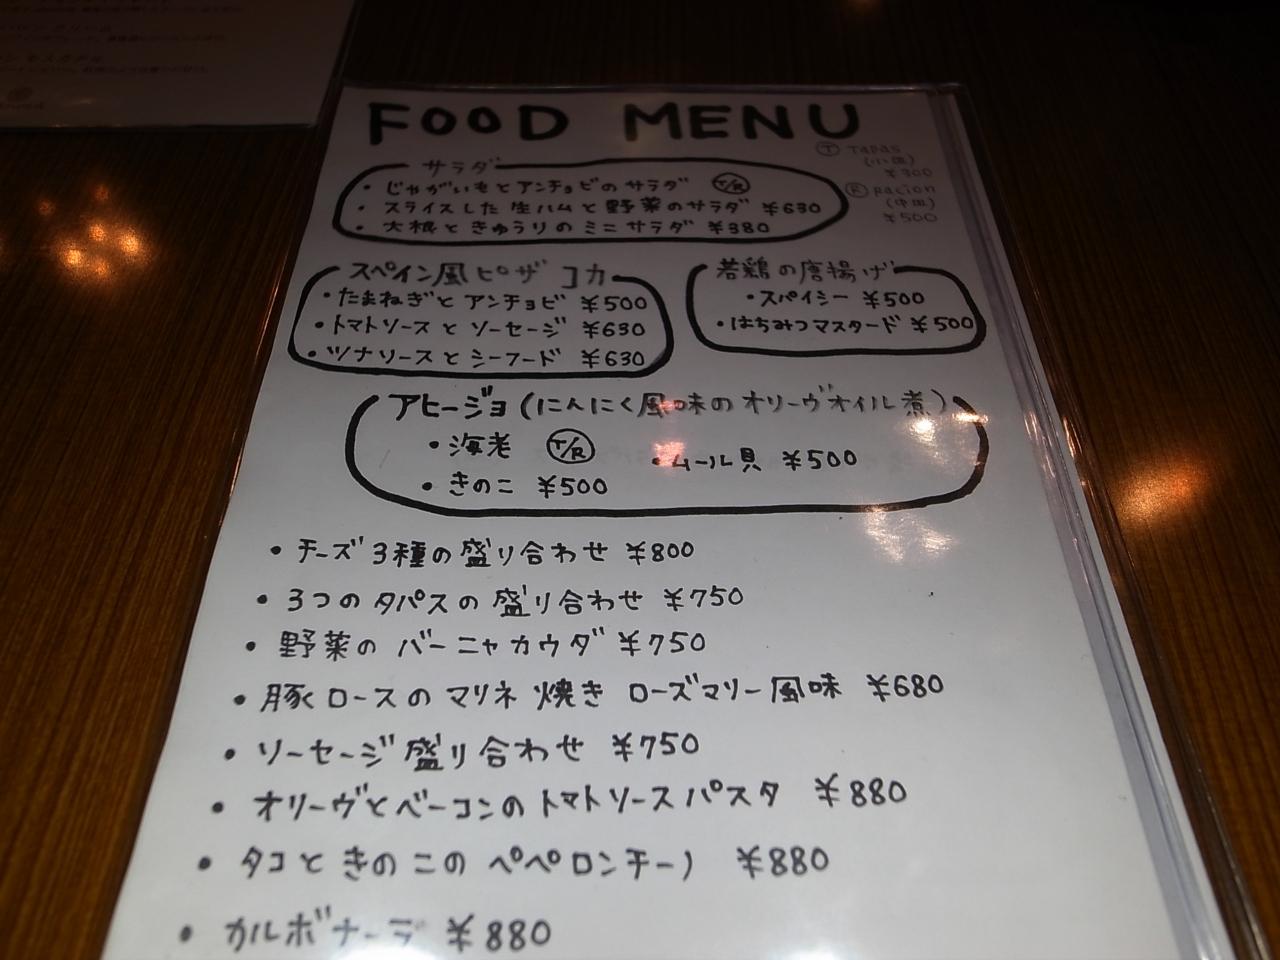 FOOD MENU
Ⓣ TAPAS
(小皿)
¥300
Ⓡ racion
(中皿)
¥500
サラダ
・じゃがいもとアンチョビのサラダ T/R
・スライスした生ハムと野菜のサラダ ¥630
・大根ときゅうりのミニサラダ ¥380
スペイン風ピザ コカ
・たまねぎとアンチョビ ¥500
・トマトソースとソーセージ ¥630
・ツナソースとシーフード ¥630
若鶏の唐揚げ
・スパイシー ¥500
・はちみつマスタード ¥500
アヒージョ(にんにく風味のオリーヴオイル煮)
・海老 T/R
・ムール貝 ¥500
・きのこ ¥500
・チーズ3種の盛り合わせ ¥800
・3つのタパスの盛り合わせ ¥750
・野菜のバーニャカウダ ¥750
・豚ロースのマリネ焼き ローズマリー風味 ¥680
・ソーセージ盛り合わせ ¥750
・オリーヴとベーコンのトマトソースパスタ ¥880
・タコときのこのペペロンチーノ ¥880
・カルボナーラ ¥880